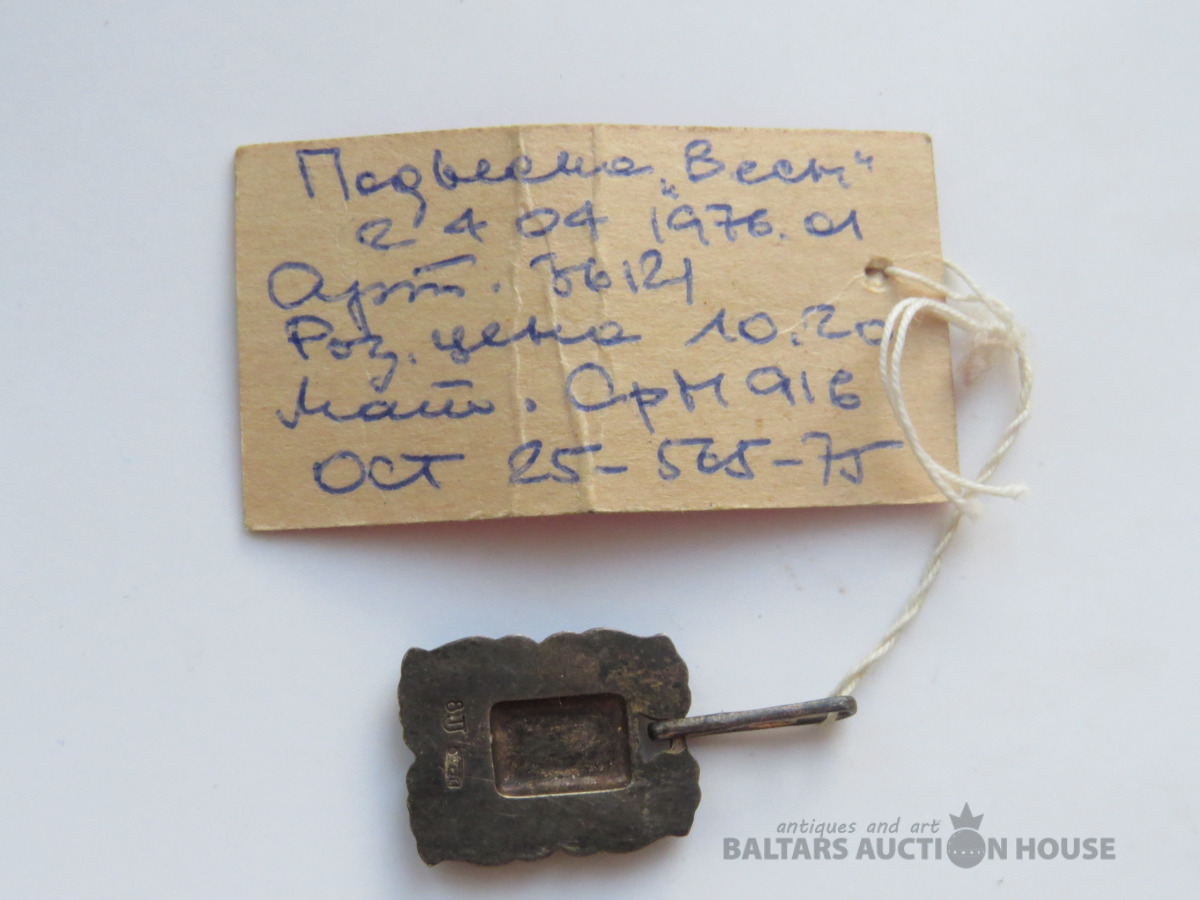 Подвеска „Вест“
2 4 04 1976.01
Арт. 36121
Роз. цена 10.20
Мат. СрМ 916
ОСТ 25-565-75
antiques and art
BALTARS AUCTION HOUSE